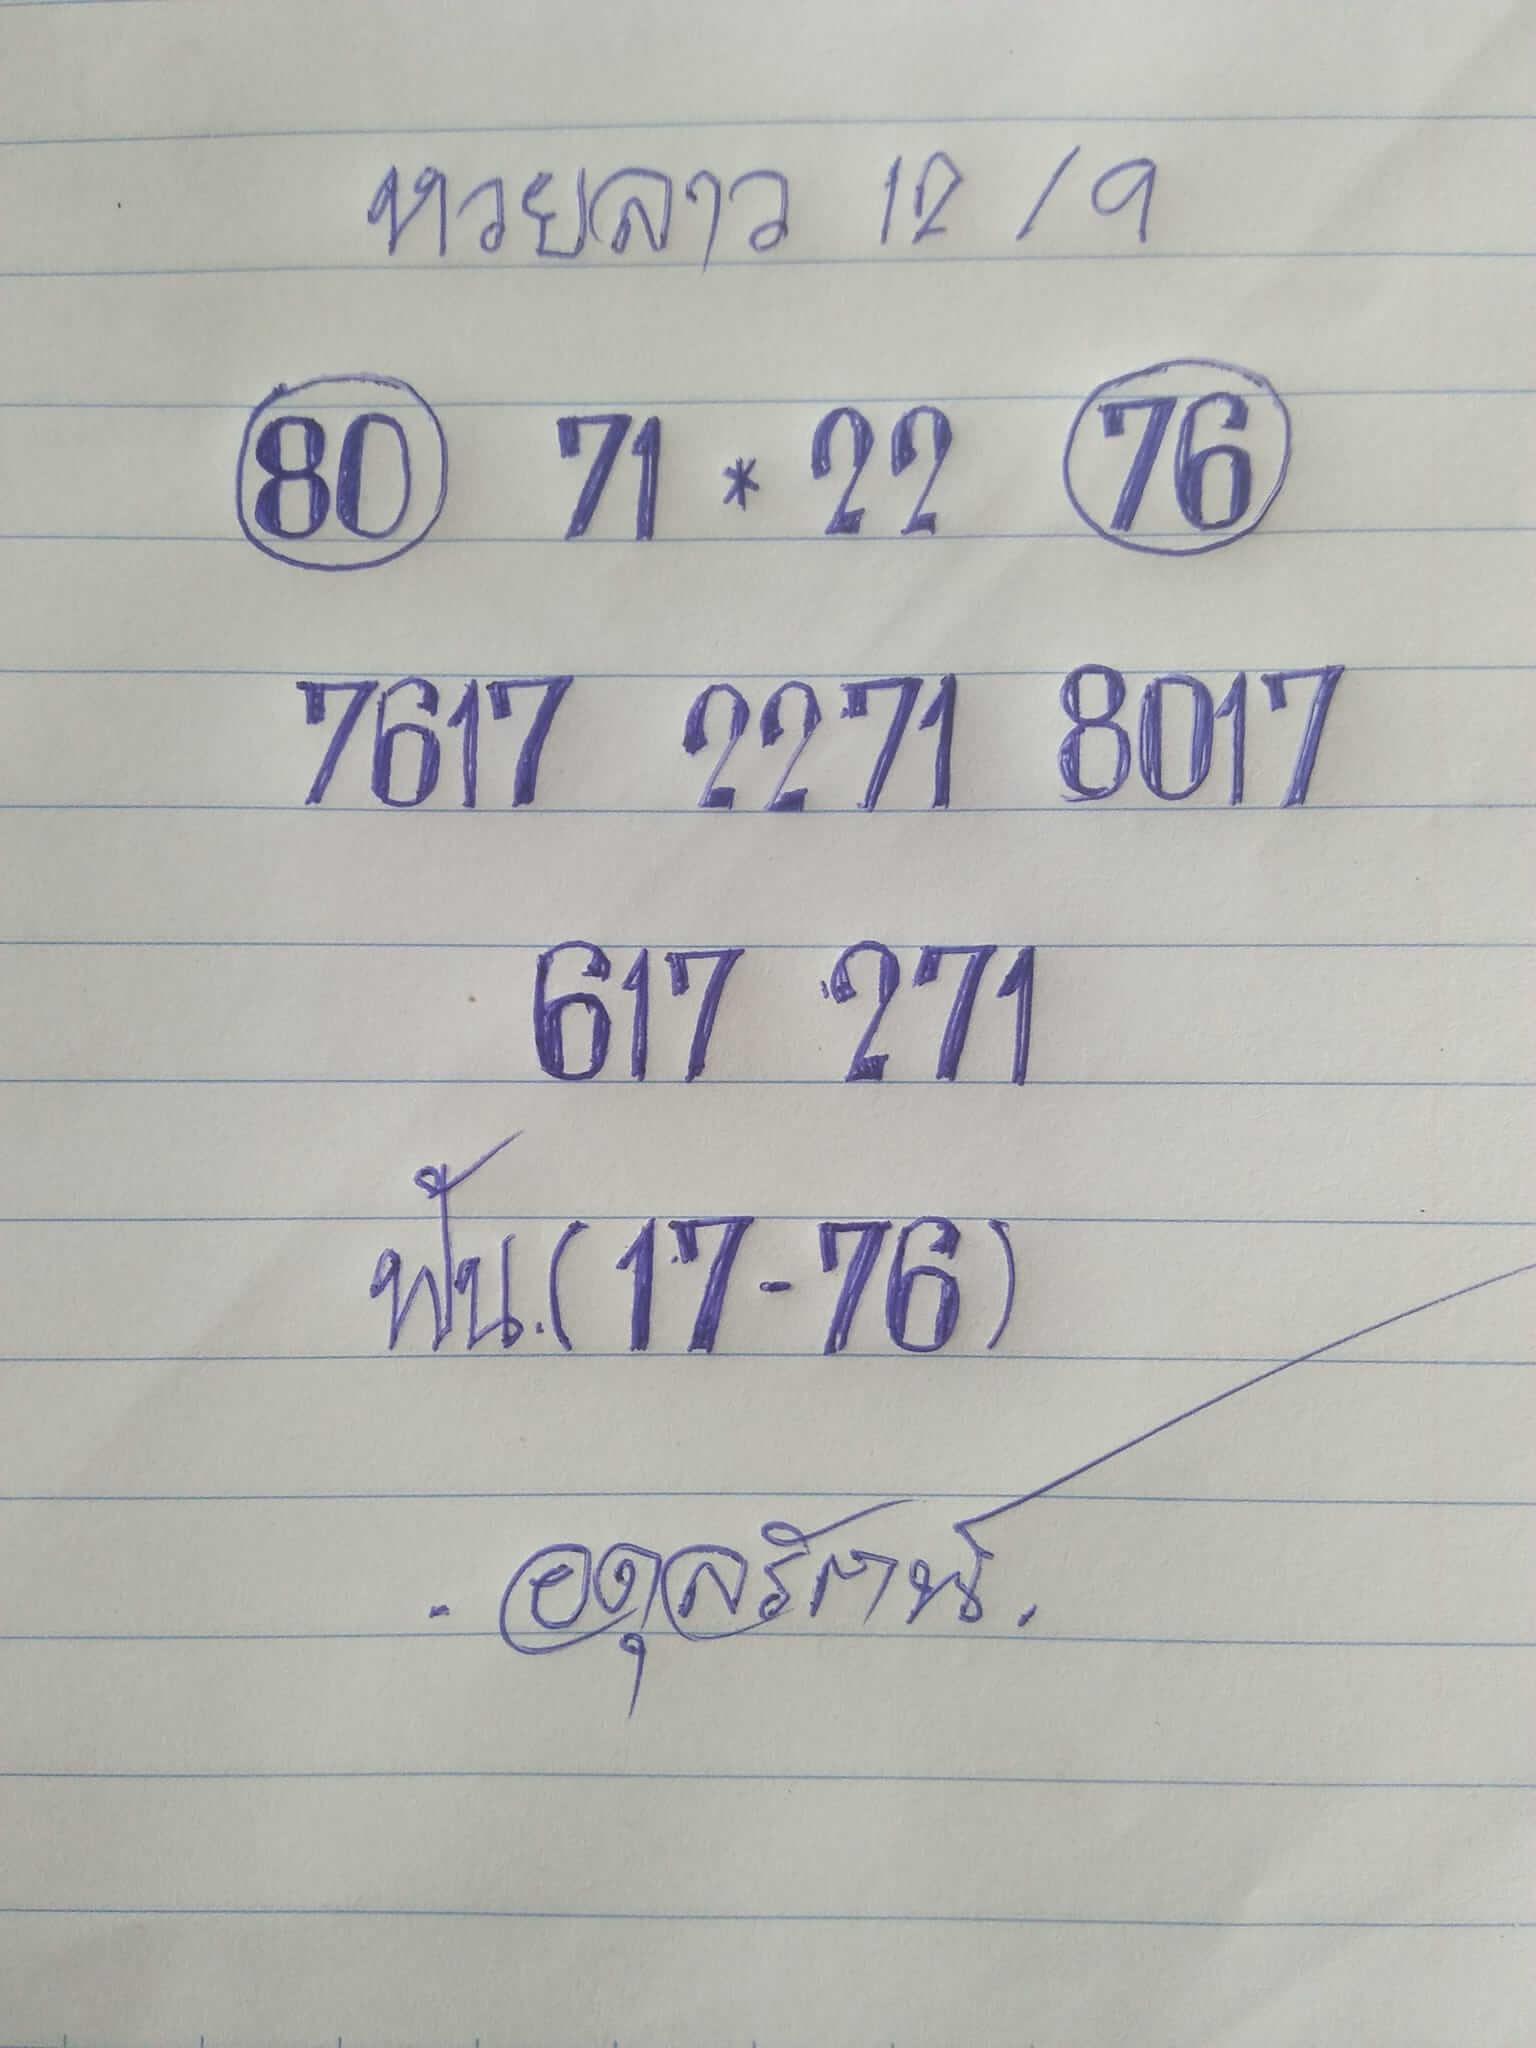 หวยลาว 12/9
80 71 * 22 76
7617 2271 8017
617 271
ฟัน.(17-76)
. อดุลรัตน์.